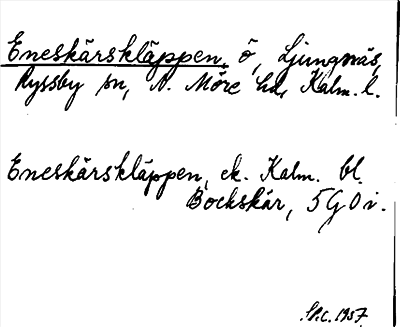 Eneskärskläppen, ö, Ljungnäs,
Ryssby sn, N. Möre hd, Kalm. l.
Eneskärskläppen, ek. Kalm. bl.
Bockskär, 5G0i.
1957